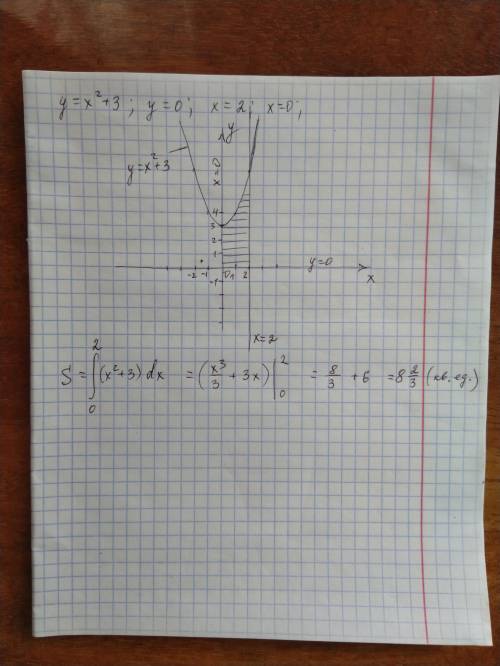 y = x² + 3 ; y = 0 ; x = 2 ; x = 0 ;
y
y = x² + 3
x = 0
4
3
2
1
-2 -1 0 1 2
y = 0
x
-1
x = 2
S = ∫₀² (x² + 3) dx = (x³/3 + 3x) |₀² = 8/3 + 6 = 8 2/3 (кв. ед.)